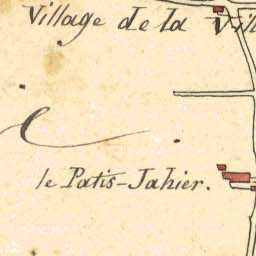 Village de la Vil
e
le Patis-Jahier.